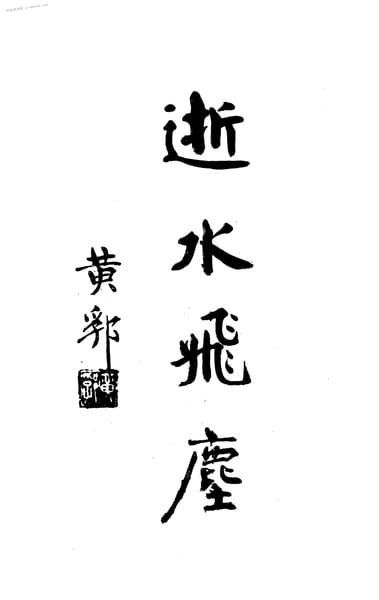 逝水飛塵
黄郛